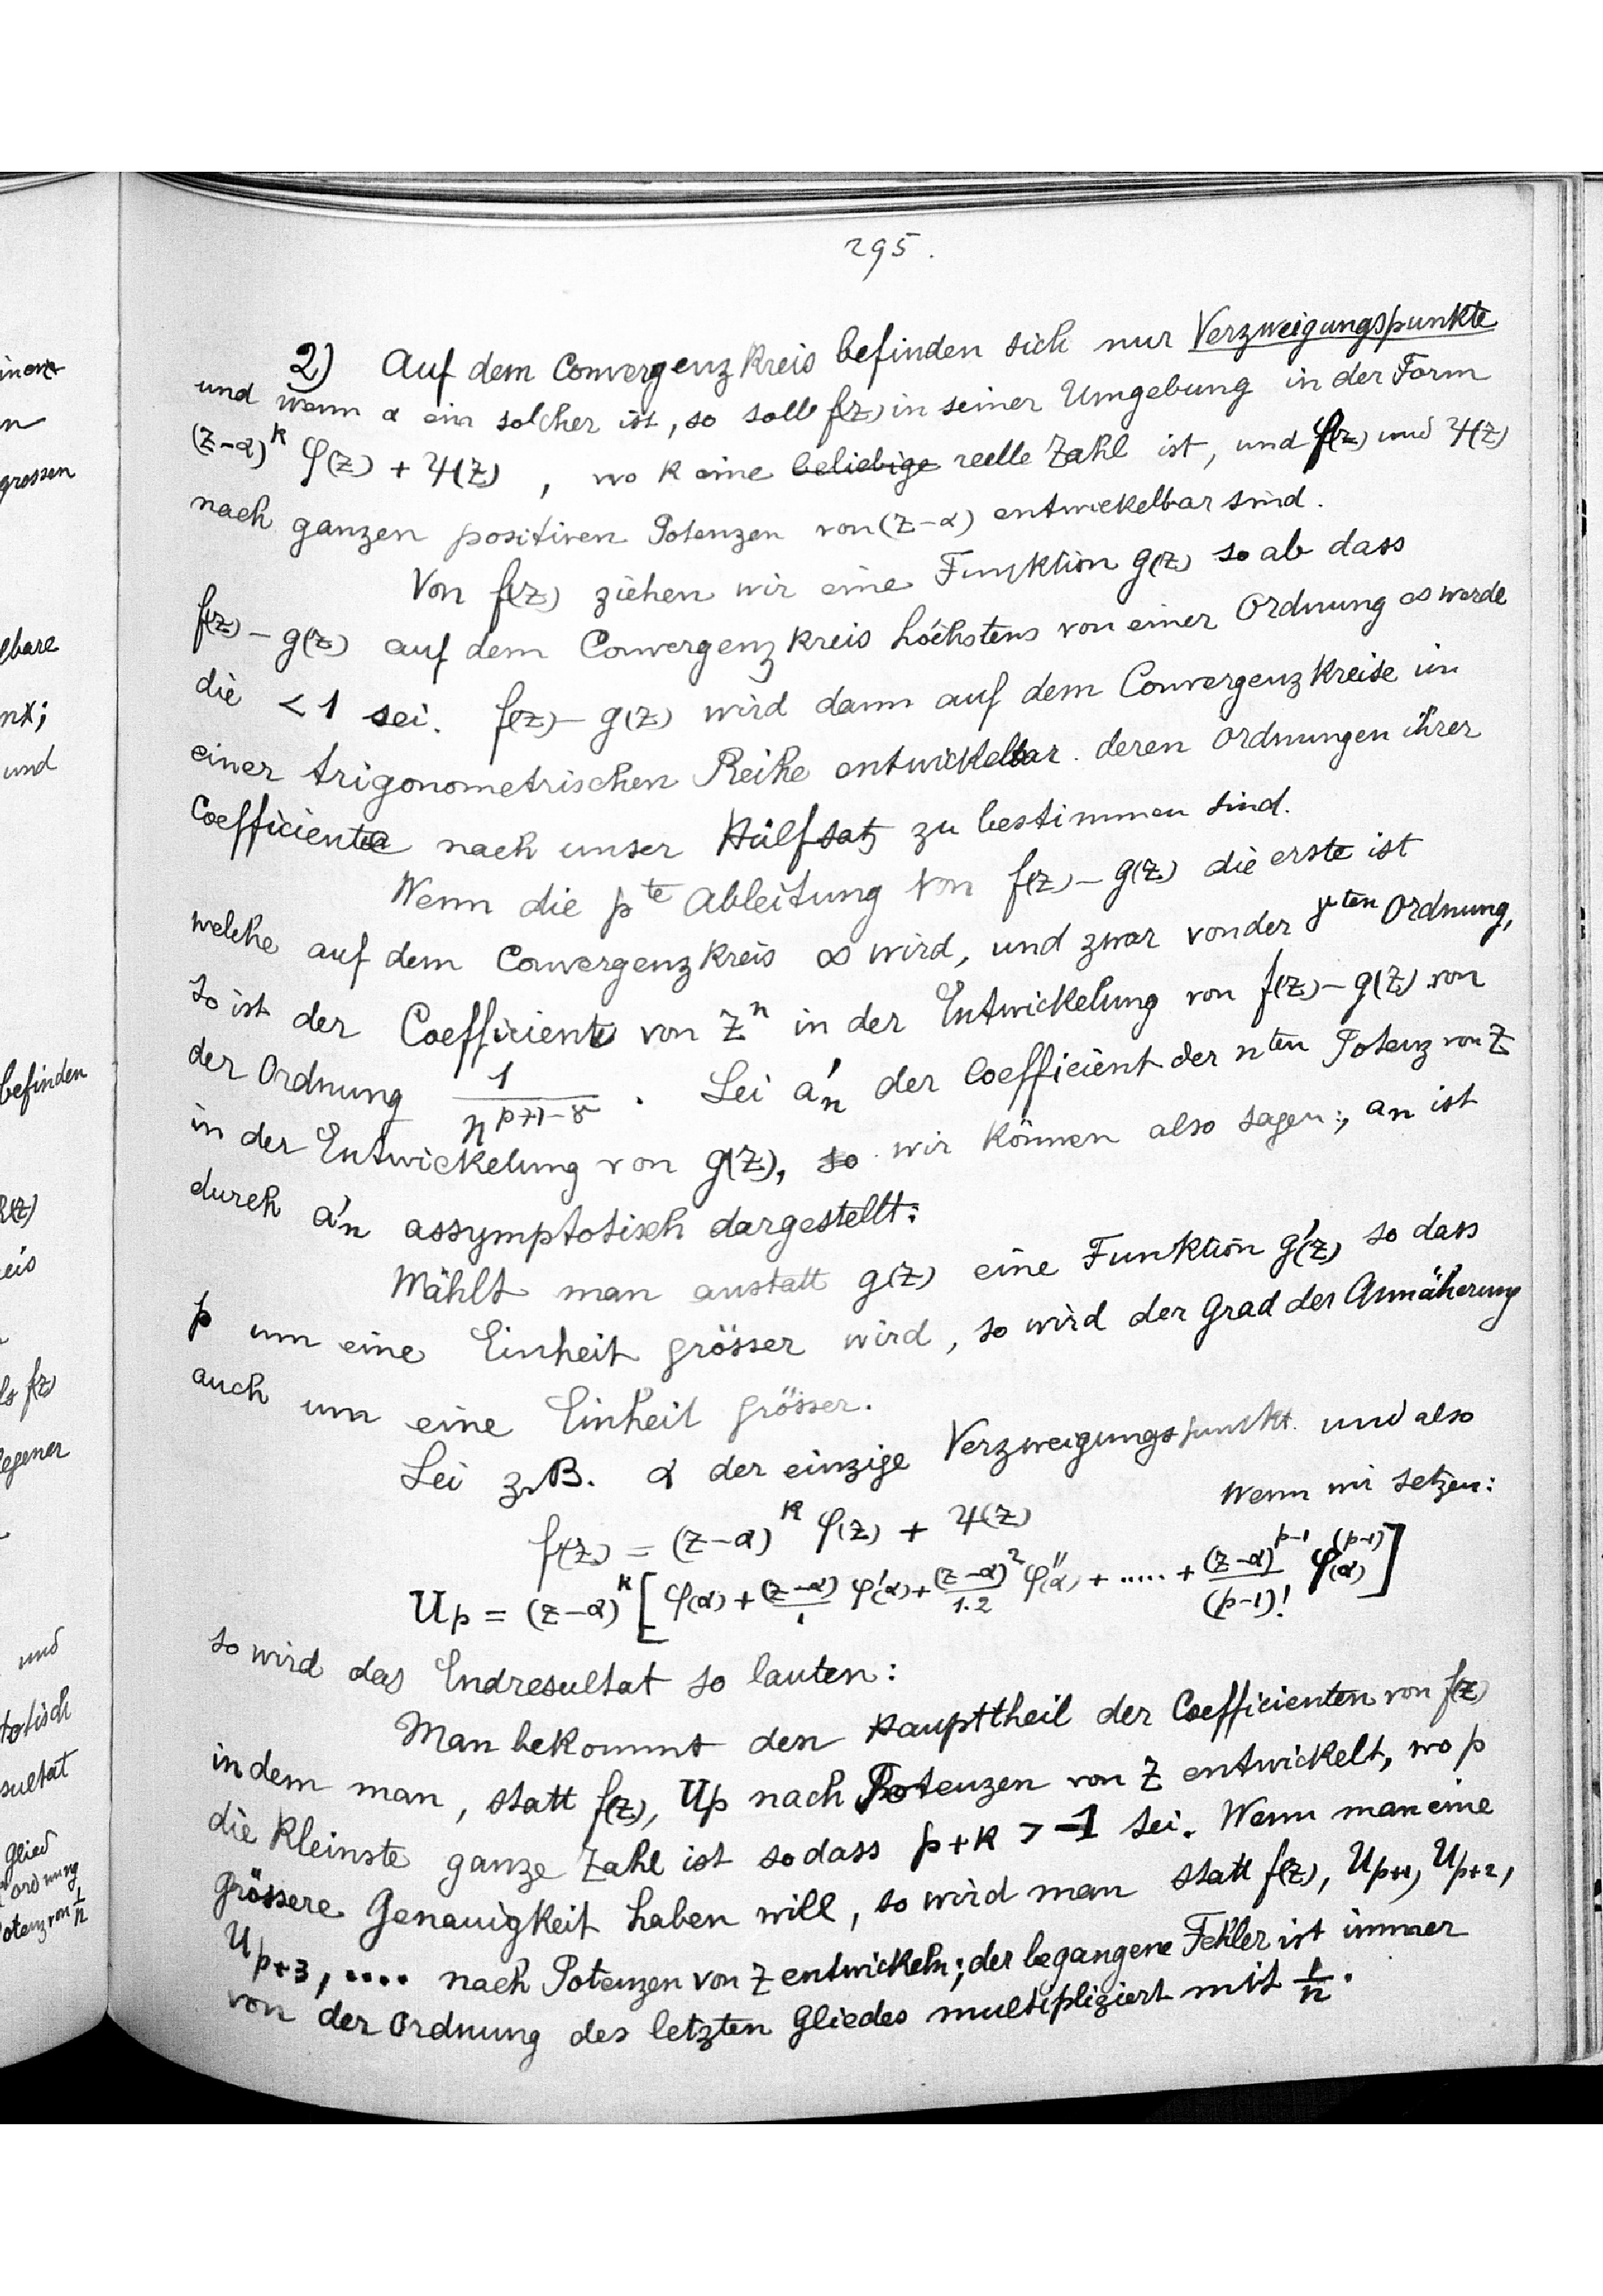 295.
2) Auf dem Convergenzkreis befinden sich nur Verzweigungspunkte
und wenn α ein solcher ist, so soll f(z) in seiner Umgebung in der Form
(z-α)^k φ(z) + ψ(z) , wo k eine beliebige reelle Zahl ist, und φ(z) und ψ(z)
nach ganzen positiven Potenzen von (z-α) entwickelbar sind.
Von f(z) ziehen wir eine Funktion g(z) so ab dass
f(z) - g(z) auf dem Convergenzkreis höchstens von einer Ordnung ∞ werde
die < 1 sei. f(z) - g(z) wird dann auf dem Convergenzkreise in
einer trigonometrischen Reihe entwickelbar deren Ordnungen ihrer
Coefficiente nach unser Hülfsatz zu bestimmen sind.
Wenn die p^te Ableitung von f(z) - g(z) die erste ist
welche auf dem Convergenzkreis ∞ wird, und zwar von der γ^ten Ordnung,
so ist der Coefficient von z^n in der Entwickelung von f(z) - g(z) von
der Ordnung 1/n^(p+1-γ) . Sei a'n der Coefficient der n^ten Potenz von z
in der Entwickelung von g(z), so wir können also sagen:, an ist
durch a'n assymptotisch dargestellt:
Wählt man anstatt g(z) eine Funktion g'(z) so dass
p um eine Einheit grösser wird, so wird der Grad der Annäherung
auch um eine Einheit grösser.
Sei z.B. α der einzige Verzweigungspunkt und also
f(z) = (z-α)^k φ(z) + ψ(z) Wenn wir setzen:
Up = (z-α)^k [φ(α) + (z-α)/1 φ'(α) + (z-α)^2/1.2 φ''(α) + ..... + (z-α)^(p-1)/(p-1)! φ^(p-1)(α)]
so wird das Endresultat so lauten:
Man bekommt den Haupttheil der Coefficienten von f(z)
indem man, statt f(z), Up nach Potenzen von z entwickelt, wo p
die kleinste ganze Zahl ist so dass p+k > -1 sei. Wenn man eine
grössere Genauigkeit haben will, so wird man statt f(z), Up+1, Up+2,
Up+3, .... nach Potenzen von z entwickeln; der begangene Fehler ist immer
von der Ordnung des letzten Gliedes multipliziert mit 1/n.